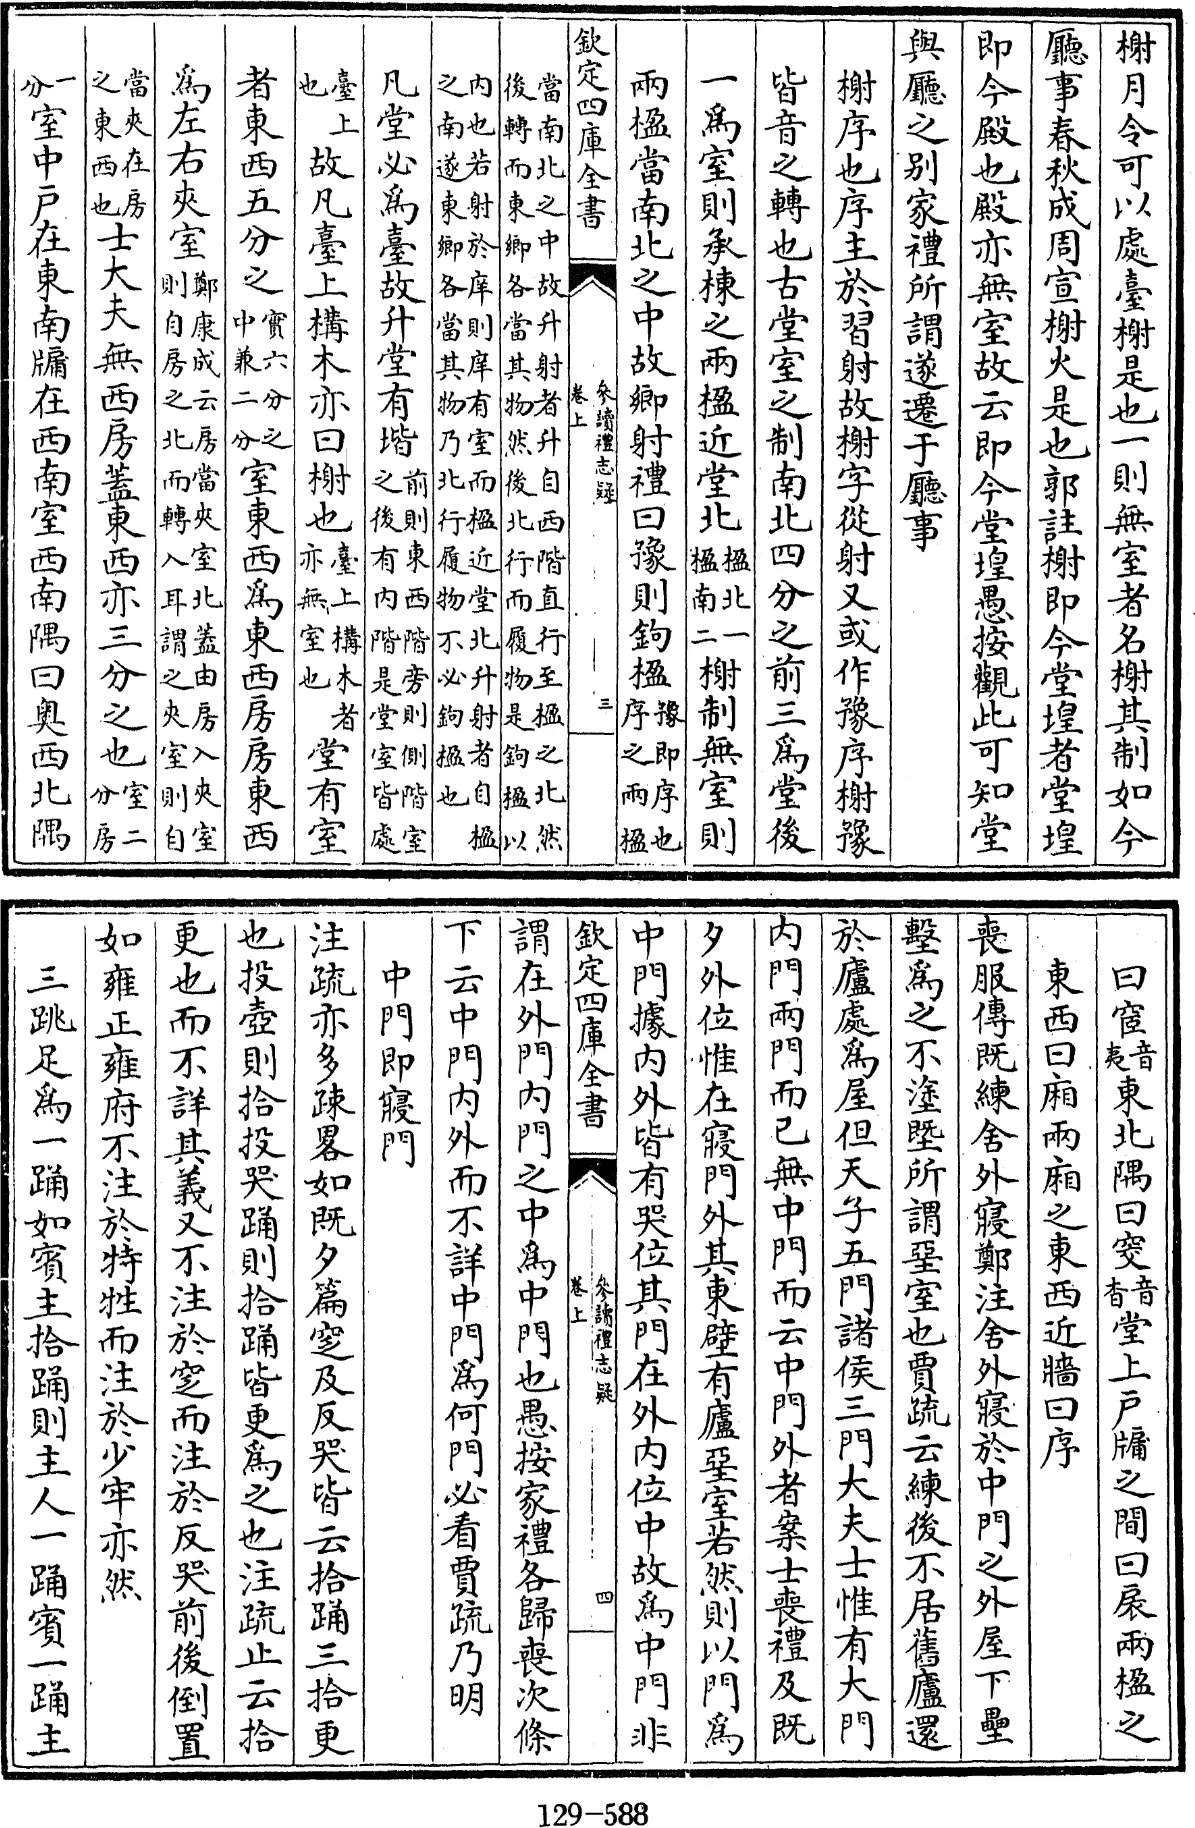 榭月令可以處臺榭是也一則無室者名榭其制如今
廳事春秋成周宣榭火是也郭註榭即今堂堭者堂堭
即今殿也殿亦無室故云即今堂堭愚按觀此可知堂
與廳之别家禮所謂遂遷于廳事
榭序也序主於習射故榭字從射又或作豫序榭豫
皆音之轉也古堂室之制南北四分之前三為堂後
一為室則承棟之兩楹近堂北楹北一楹南二榭制無室則
兩楹當南北之中故鄉射禮曰豫則鉤楹豫即序也序之兩楹
欽定四庫全書
參讀禮志疑
卷上
三
當南北之中故升射者升自西階直行至楹之北然
後轉而東鄉各當其物然後北行而履物是鉤楹以
内也若射於庠則庠有室而楹近堂北升射者自楹
之南遂東鄉各當其物乃北行履物不必鉤楹也
凡堂必為臺故升堂有堦前則東西階旁則側階室之後有内階是堂室皆處
臺上也故凡臺上構木亦曰榭也臺上構木者亦無室也堂有室
者東西五分之實六分之中兼二分室東西為東西房房東西
為左右夾室鄭康成云房當夾室北蓋由房入夾室則自房之北而轉入耳謂之夾室則自
當夾在房之東西也士大夫無西房蓋東西亦三分之也室二分房
一分室中戶在東南牖在西南室西南隅曰奥西北隅
曰窔音夷東北隅曰穾音杳堂上戶牖之間曰扆兩楹之
東西曰廂兩廂之東西近牆曰序
喪服傳既練舍外寢鄭注舍外寢於中門之外屋下壘
墼為之不塗塈所謂堊室也賈疏云練後不居舊廬還
於廬處為屋但天子五門諸侯三門大夫士惟有大門
内門兩門而已無中門而云中門外者案士喪禮及既
夕外位惟在寢門外其東壁有廬堊室若然則以門為
中門據内外皆有哭位其門在外内位中故為中門非
欽定四庫全書
參讀禮志疑
卷上
四
謂在外門内門之中為中門也愚按家禮各歸喪次條
下云中門内外而不詳中門為何門必看賈疏乃明
中門即寢門
注疏亦多疎畧如既夕篇窆及反哭皆云拾踊三拾更
也投壺則拾投哭踊則拾踊皆更為之也注疏止云拾
更也而不詳其義又不注於窆而注於反哭前後倒置
如雍正雍府不注於特牲而注於少牢亦然
三跳足為一踊如賓主拾踊則主人一踊賓一踊主
129-588